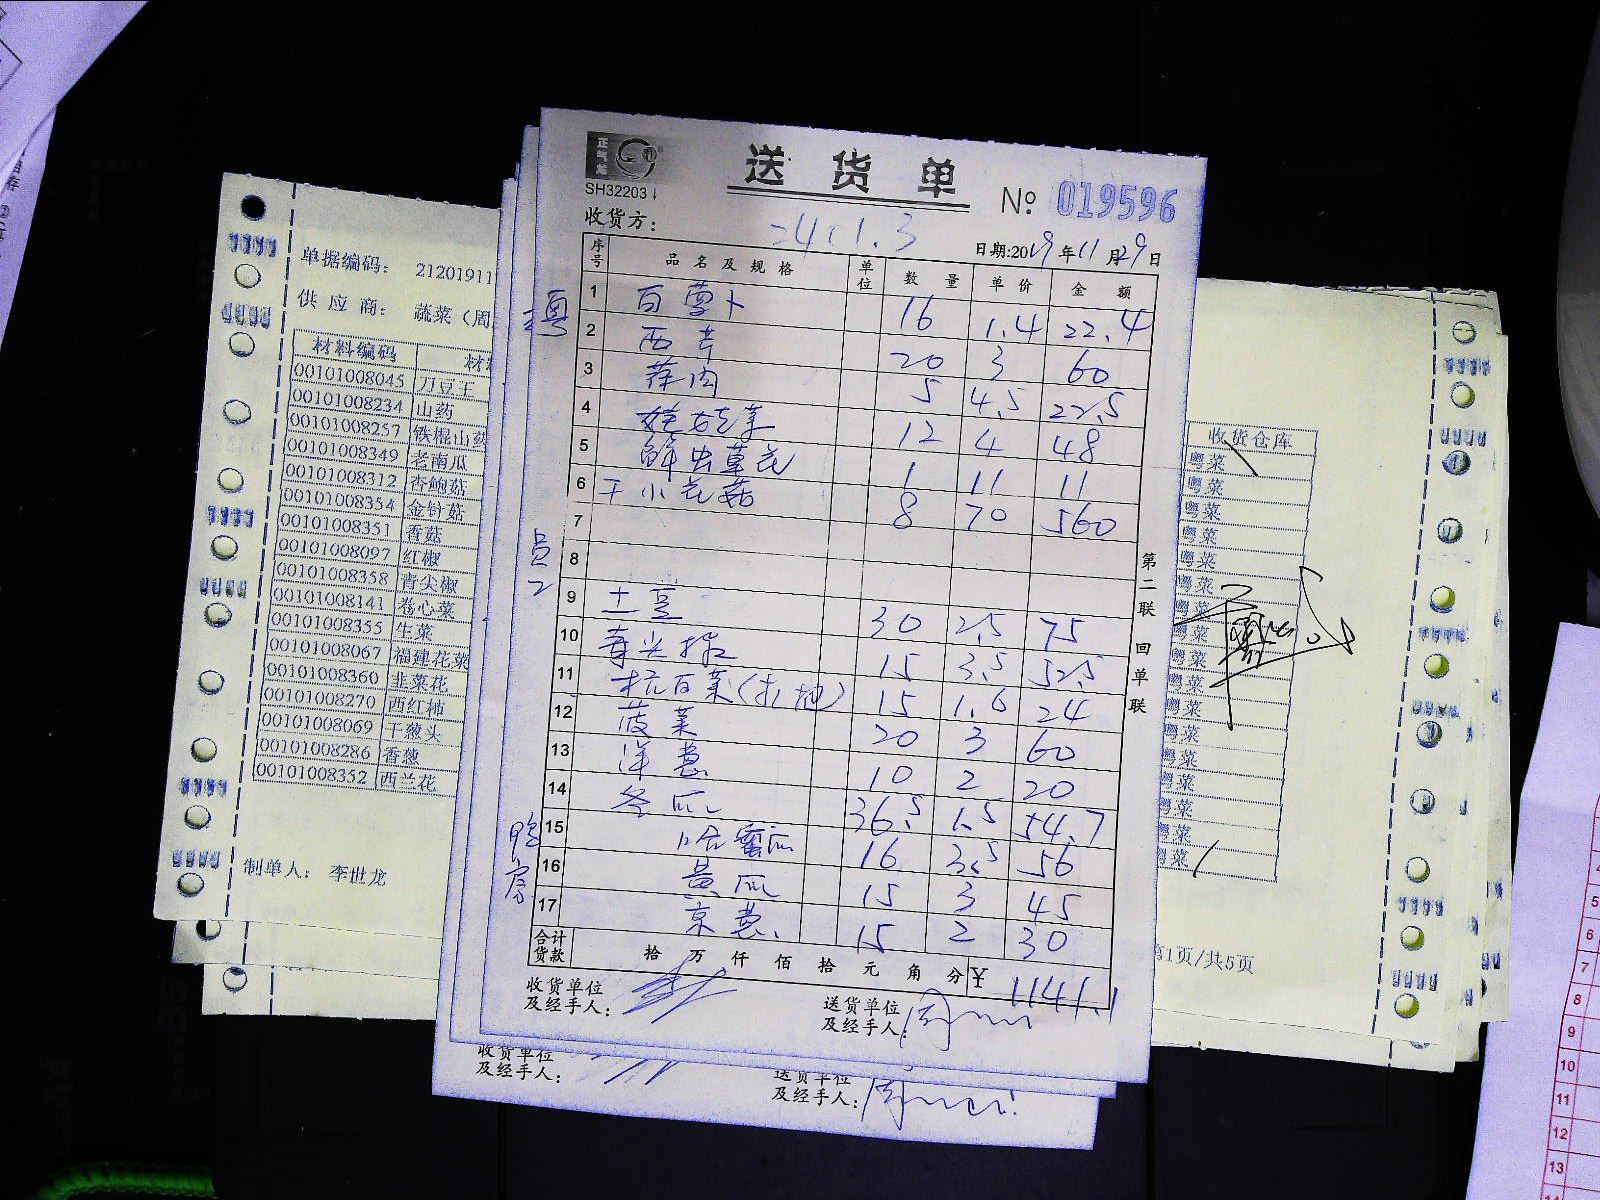 送货单
SH32203
No 019596
收货方：
日期:2019年11月29日
序号 品名及规格 单位 数量 单价 金额
粤
1 白萝卜 16 1.4 22.4
2 西芹 20 3 60
3 荸肉 5 4.5 22.5
4 娃娃菜 12 4 48
5 鲜虫草花 1 11 11
6 干小花菇 8 70 560
7
员工
8
9 土豆 30 2.5 75
10 青尖椒 15 3.5 52.5
11 杭白菜(本地) 15 1.6 24
12 菠菜 20 3 60
13 洋葱 10 2 20
14 冬瓜 36.5 1.5 54.7
15 哈蜜瓜 16 3.5 56
16 黄瓜 15 3 45
17 京葱 15 2 30
合计货款 拾万仟佰拾元角分 ¥ 1141.1
收货单位及经手人：
送货单位及经手人：
第二联 回单联
收货单位
及经手人：
送货单位
及经手人：
单据编码： 21201911
供应商： 蔬菜（周
材料编码 材
00101008045 刀豆王
00101008234 山药
00101008257 铁棍山药
00101008349 老南瓜
00101008312 杏鲍菇
00101008354 金针菇
00101008351 香菇
00101008097 红椒
00101008358 青尖椒
00101008141 卷心菜
00101008355 生菜
00101008067 福建花菜
00101008360 韭菜花
00101008270 西红柿
00101008069 干葱头
00101008286 香葱
00101008352 西兰花
制单人： 李世龙
收货仓库
粤菜
粤菜
粤菜
粤菜
粤菜
粤菜
粤菜
粤菜
粤菜
粤菜
粤菜
粤菜
粤菜
粤菜
粤菜
粤菜
粤菜
第1页/共5页
5
6
7
8
9
10
11
12
13